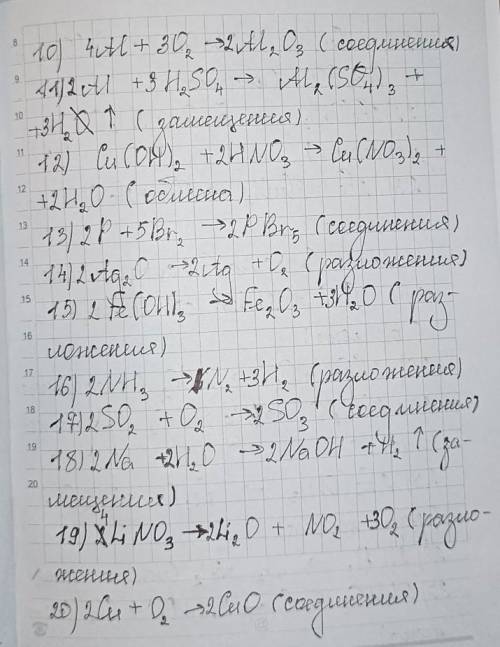 8
10) 4Al + 3O₂ → 2Al₂O₃ (соедмнения)
9
11) 2Al + 3H₂SO₄ → Al₂(SO₄)₃ +
10
+3H₂ ↑ (замещения)
11
12) Cu(OH)₂ + 2HNO₃ → Cu(NO₃)₂ +
12
+2H₂O (обмена)
13
13) 2P + 5Br₂ → 2PBr₅ (соединения)
14
14) 2Ag₂O → 2Ag + O₂ (разложения)
15
15) 2Fe(OH)₃ → Fe₂O₃ + 3H₂O (раз-
16
ложения)
17
16) 2NH₃ → N₂ + 3H₂ (разложения)
18
17) 2SO₂ + O₂ → 2SO₃ (соедмнения)
19
18) 2Na + 2H₂O → 2NaOH + H₂ ↑ (за-
20
мещения)
19) 4LiNO₃ → 2Li₂O + NO₂ + 3O₂ (разло-
жения)
20) 2Cu + O₂ → 2CuO (соединения)